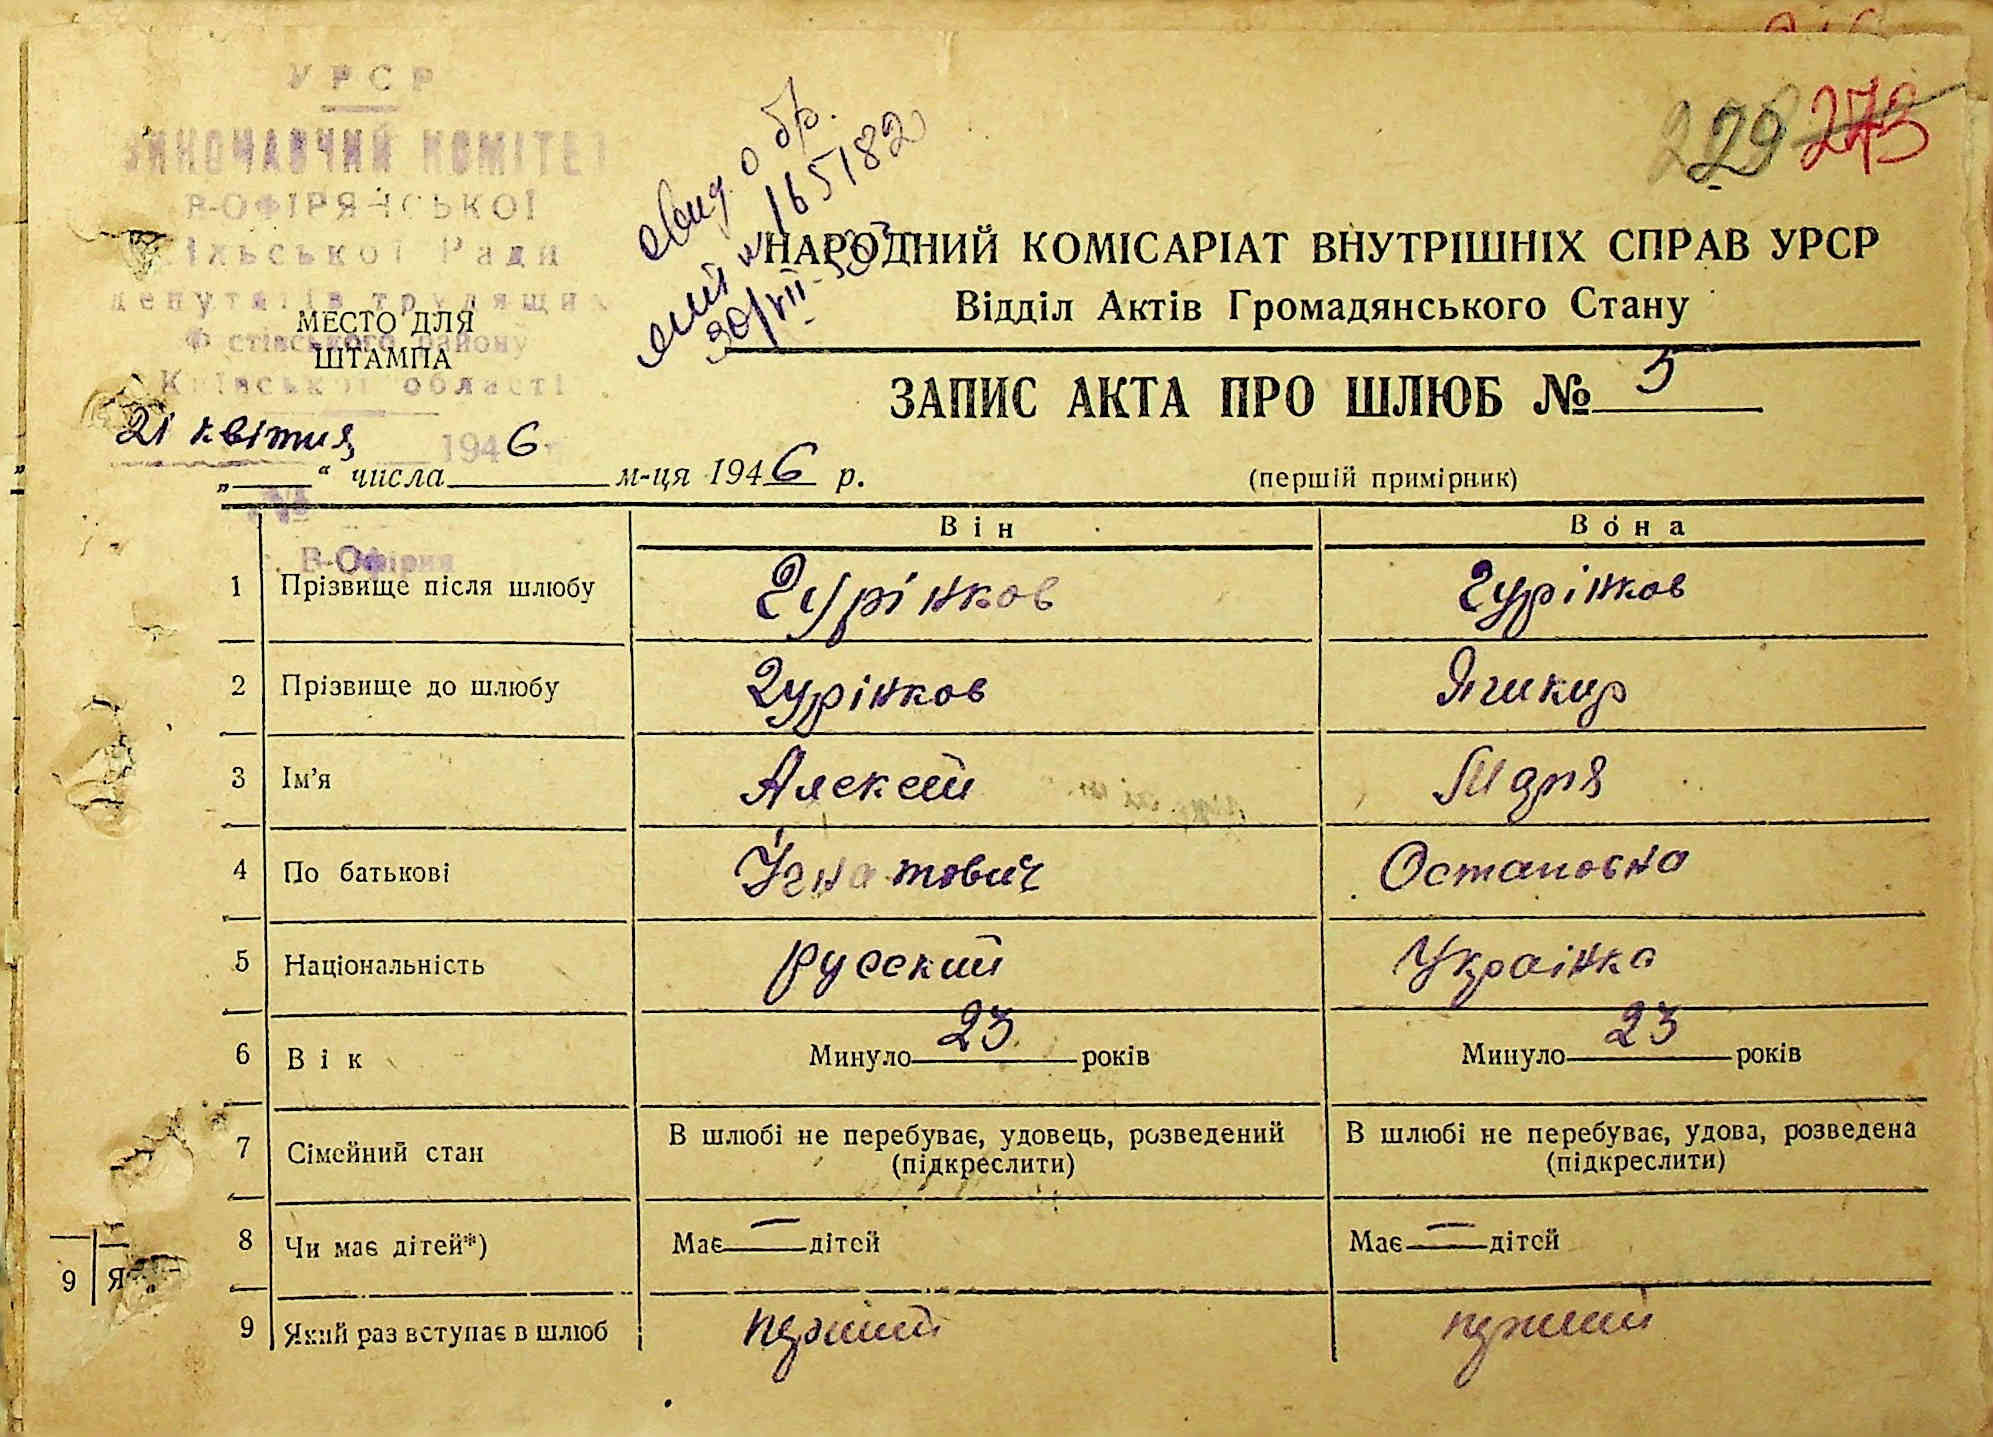 УРСР
ВИКОНАВЧИЙ КОМІТЕТ
В-ОФІРЯНСЬКОЇ
Сільської Ради
депутатів трудящих
Фастівського району
Київської області
21 квітня 1946
№
В-Офірня
229 273
свид. о бр.
№ 165182
30/VII-
МЕСТО ДЛЯ
ШТАМПА
НАРОДНИЙ КОМІСАРІАТ ВНУТРІШНІХ СПРАВ УРСР
Відділ Актів Громадянського Стану
ЗАПИС АКТА ПРО ШЛЮБ № 5
„ “ числа м-ця 1946 р.
(першій примірник)
Він Вона
1 Прізвище після шлюбу Гурінков Гурінков
2 Прізвище до шлюбу Гурінков Ячикир
3 Ім’я Алексей Марія
4 По батькові Ігнатович Остаповна
5 Національність русский Українка
6 Вік Минуло 23 років Минуло 23 років
7 Сімейний стан В шлюбі не перебуває, удовець, розведений (підкреслити) В шлюбі не перебуває, удова, розведена (підкреслити)
8 Чи має дітей*) Має — дітей Має — дітей
9 Який раз вступає в шлюб перший перший
9 Я